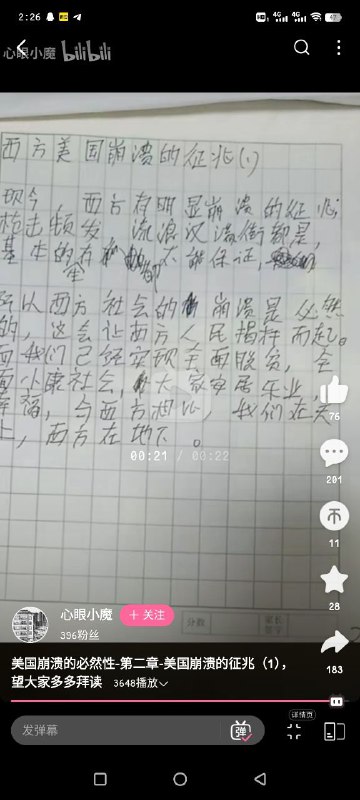 2:26
47
心眼小魔 bilibili
西方美国崩溃的征兆(1)
现今,西方有明显崩溃的征兆
枪击频发,流浪汉满街都是,
基本的
不能保证,
所以西方社会的崩溃是必然
的,这会让西方人民揭杆而起。
而我们已经实现全面脱贫,全
面小康社会,大家安居乐业,
幸福,与西方相比,我们在天
上,西方在地下。
00:21 / 00:22
76
201
11
28
183
分数
家长签字
心眼小魔
+ 关注
396粉丝
美国崩溃的必然性-第二章-美国崩溃的征兆(1),
望大家多多拜读 3648播放
详情页
发弹幕
弹